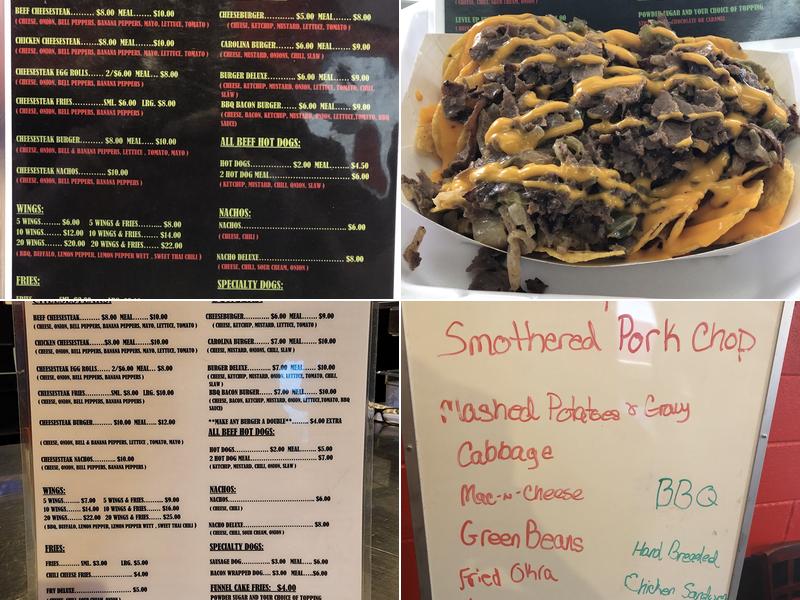 BEEF CHEESESTEAK........$8.00 MEAL...$10.00
( CHEESE, ONION, BELL PEPPERS, BANANA PEPPERS, MAYO, LETTUCE, TOMATO )
CHICKEN CHEESESTEAK.......$8.00 MEAL...$10.00
( CHEESE, ONION, BELL PEPPERS, BANANA PEPPERS, MAYO, LETTUCE, TOMATO )
CHEESESTEAK EGG ROLLS...... 2/$6.00 MEAL... $8.00
( CHEESE, ONION, BELL PEPPERS, BANANA PEPPERS)
CHEESESTEAK FRIES..........SML. $6.00 LRG. $8.00
( CHEESE, ONION, BELL PEPPERS, BANANA PEPPERS)
CHEESESTEAK BURGER........$8.00 MEAL....$10.00
( CHEESE, ONION, BELL & BANANA PEPPERS, LETTUCE , TOMATO, MAYO )
CHEESESTEAK NACHOS........$10.00
( CHEESE, ONION, BELL PEPPERS, BANANA PEPPERS)
WINGS:
5 WINGS........ $6.00 5 WINGS & FRIES........$8.00
10 WINGS....... $12.00 10 WINGS & FRIES.......$14.00
20 WINGS....... $20.00 20 WINGS & FRIES....... $22.00
( BBQ, BUFFALO, LEMON PEPPER, LEMON PEPPER WETT , SWEET THAI CHILI )
FRIES:
CHEESEBURGER.........$5.00 MEAL.... $8.00
( CHEESE, KETCHUP, MUSTARD, LETTUCE, TOMATO )
CAROLINA BURGER.......$6.00 MEAL....$9.00
( CHEESE, MUSTARD, ONIONS, CHILI, SLAW )
BURGER DELUXE..............$6.00 MEAL....$9.00
( CHEESE, KETCHUP, MUSTARD, ONIONS, LETTUCE, TOMATO, CHILI,
SLAW )
BBQ BACON BURGER......$6.00 MEAL....$9.00
( CHEESE, BACON, KETCHUP, MUSTARD, ONION, LETTUCE,TOMATO, BBQ
SAUCE)
ALL BEEF HOT DOGS:
HOT DOGS................$2.00 MEAL.... $4.50
2 HOT DOG MEAL...................$6.00
( KETCHUP, MUSTARD, CHILI, ONION, SLAW )
NACHOS:
NACHOS..............................$6.00
( CHEESE, CHILI )
NACHO DELUXE....................$8.00
( CHEESE, CHILI, SOUR CREAM, ONION )
SPECIALTY DOGS:
POWDER SUGAR AND YOUR CHOICE OF TOPPING
CHOCOLATE OR CARAMEL
BEEF CHEESESTEAK........$8.00 MEAL....$10.00
( CHEESE, ONION, BELL PEPPERS, BANANA PEPPERS, MAYO, LETTUCE, TOMATO )
CHICKEN CHEESESTEAK.......$8.00 MEAL...$10.00
( CHEESE, ONION, BELL PEPPERS, BANANA PEPPERS, MAYO, LETTUCE, TOMATO )
CHEESESTEAK EGG ROLLS...... 2/$6.00 MEAL... $8.00
( CHEESE, ONION, BELL PEPPERS, BANANA PEPPERS)
CHEESESTEAK FRIES..........SML. $8.00 LRG. $10.00
( CHEESE, ONION, BELL PEPPERS, BANANA PEPPERS)
CHEESESTEAK BURGER........$10.00 MEAL....$12.00
( CHEESE, ONION, BELL & BANANA PEPPERS, LETTUCE , TOMATO, MAYO )
CHEESESTEAK NACHOS........$10.00
( CHEESE, ONION, BELL PEPPERS, BANANA PEPPERS)
WINGS:
5 WINGS........ $7.00 5 WINGS & FRIES........$9.00
10 WINGS....... $14.00 10 WINGS & FRIES.......$16.00
20 WINGS....... $22.00 20 WINGS & FRIES....... $25.00
( BBQ, BUFFALO, LEMON PEPPER, LEMON PEPPER WETT , SWEET THAI CHILI )
FRIES:
FRIES............. SML. $3.00 LRG. $5.00
CHILI CHEESE FRIES..............$4.00
FRY DELUXE........................$5.00
CHEESEBURGER.........$6.00 MEAL.... $9.00
( CHEESE, KETCHUP, MUSTARD, LETTUCE, TOMATO )
CAROLINA BURGER.......$7.00 MEAL....$10.00
( CHEESE, MUSTARD, ONIONS, CHILI, SLAW )
BURGER DELUXE..............$7.00 MEAL....$10.00
( CHEESE, KETCHUP, MUSTARD, ONIONS, LETTUCE, TOMATO, CHILI,
SLAW )
BBQ BACON BURGER......$7.00 MEAL....$10.00
( CHEESE, BACON, KETCHUP, MUSTARD, ONION, LETTUCE,TOMATO, BBQ
SAUCE)
**MAKE ANY BURGER A DOUBLE**........ $4.00 EXTRA
ALL BEEF HOT DOGS:
HOT DOGS................$2.00 MEAL.... $5.00
2 HOT DOG MEAL...................$7.00
( KETCHUP, MUSTARD, CHILI, ONION, SLAW )
NACHOS:
NACHOS..............................$6.00
( CHEESE, CHILI )
NACHO DELUXE....................$8.00
( CHEESE, CHILI, SOUR CREAM, ONION )
SPECIALTY DOGS:
SAUSAGE DOG...............$3.00 MEAL.... $6.00
BACON WRAPPED DOG.... $3.00 MEAL....$6.00
FUNNEL CAKE FRIES: $4.00
POWDER SUGAR AND YOUR CHOICE OF TOPPING
Smothered Pork Chop
Mashed Potatoes & Gravy
Cabbage
Mac-n-Cheese
Green Beans
Fried Okra
BBQ
Hand Breaded
Chicken